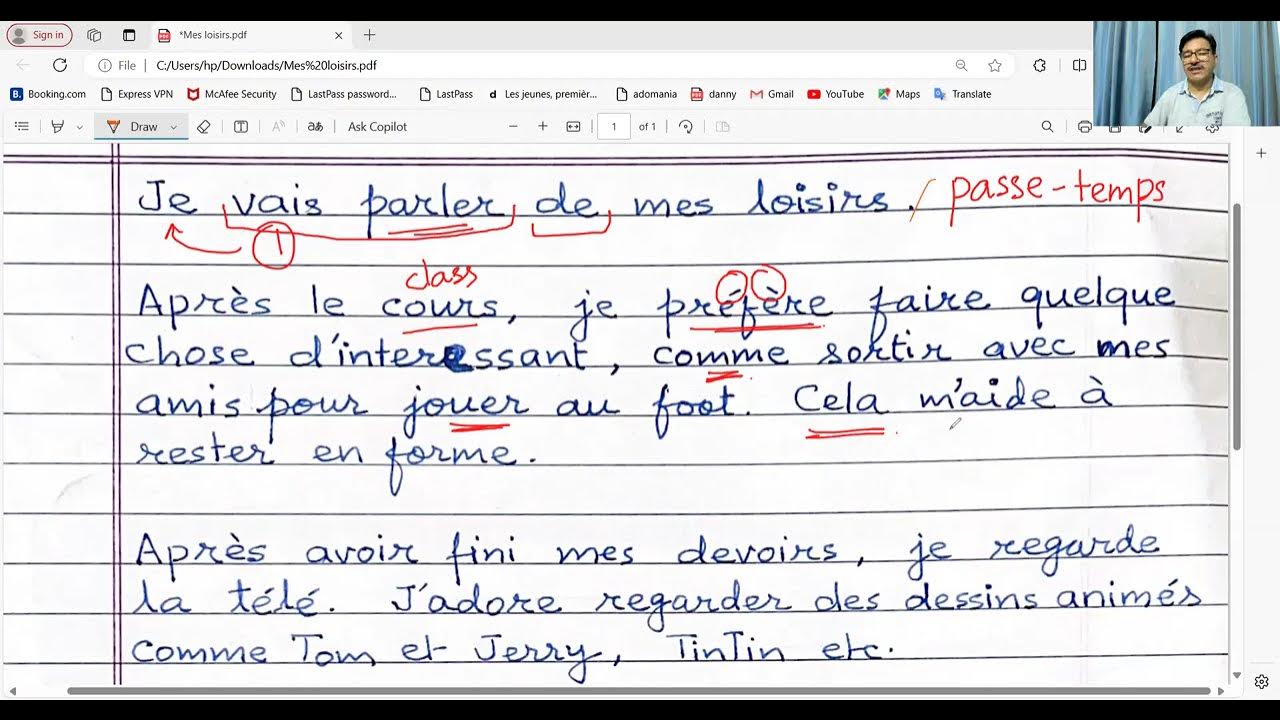 Sign in
*Mes loisirs.pdf
File C:/Users/hp/Downloads/Mes%20loisirs.pdf
B. Booking.com Express VPN McAfee Security LastPass password... LastPass d Les jeunes, premièr... adomania danny Gmail YouTube Maps Translate
Draw aあ Ask Copilot 1 of 1
Je vais parler de mes loisirs. / passe-temps
1
class
Après le cours, je préfère faire quelque
chose d'interessant, comme sortir avec mes
amis pour jouer au foot. Cela m'aide à
rester en forme.
Après avoir fini mes devoirs, je regarde
la télé. J'adore regarder des dessins animés
comme Tom et Jerry, TinTin etc.